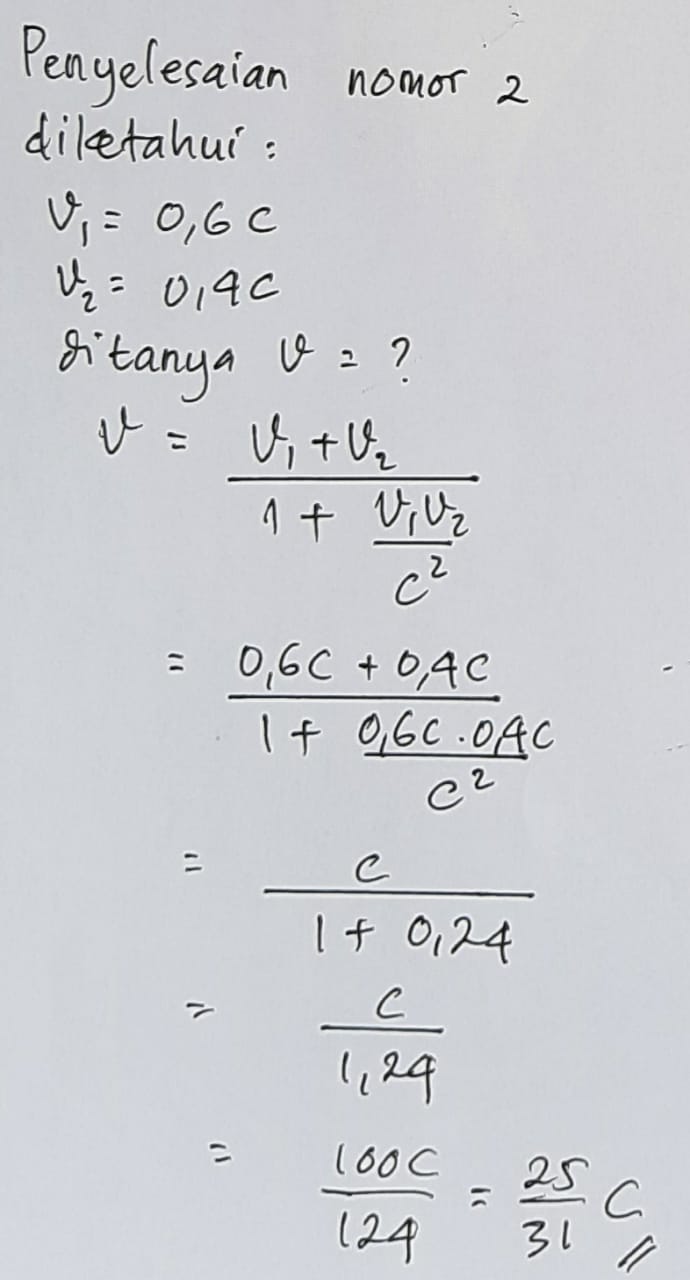 Penyelesaian nomor 2
diketahui :
V₁ = 0,6 C
V₂ = 0,4C
ditanya V = ?
V = V₁ + V₂
1 + V₁V₂
C²
= 0,6C + 0,4C
1 + 0,6C . 0,4C
C²
= C
1 + 0,24
= C
1,24
= 100C = 25 C
124 31